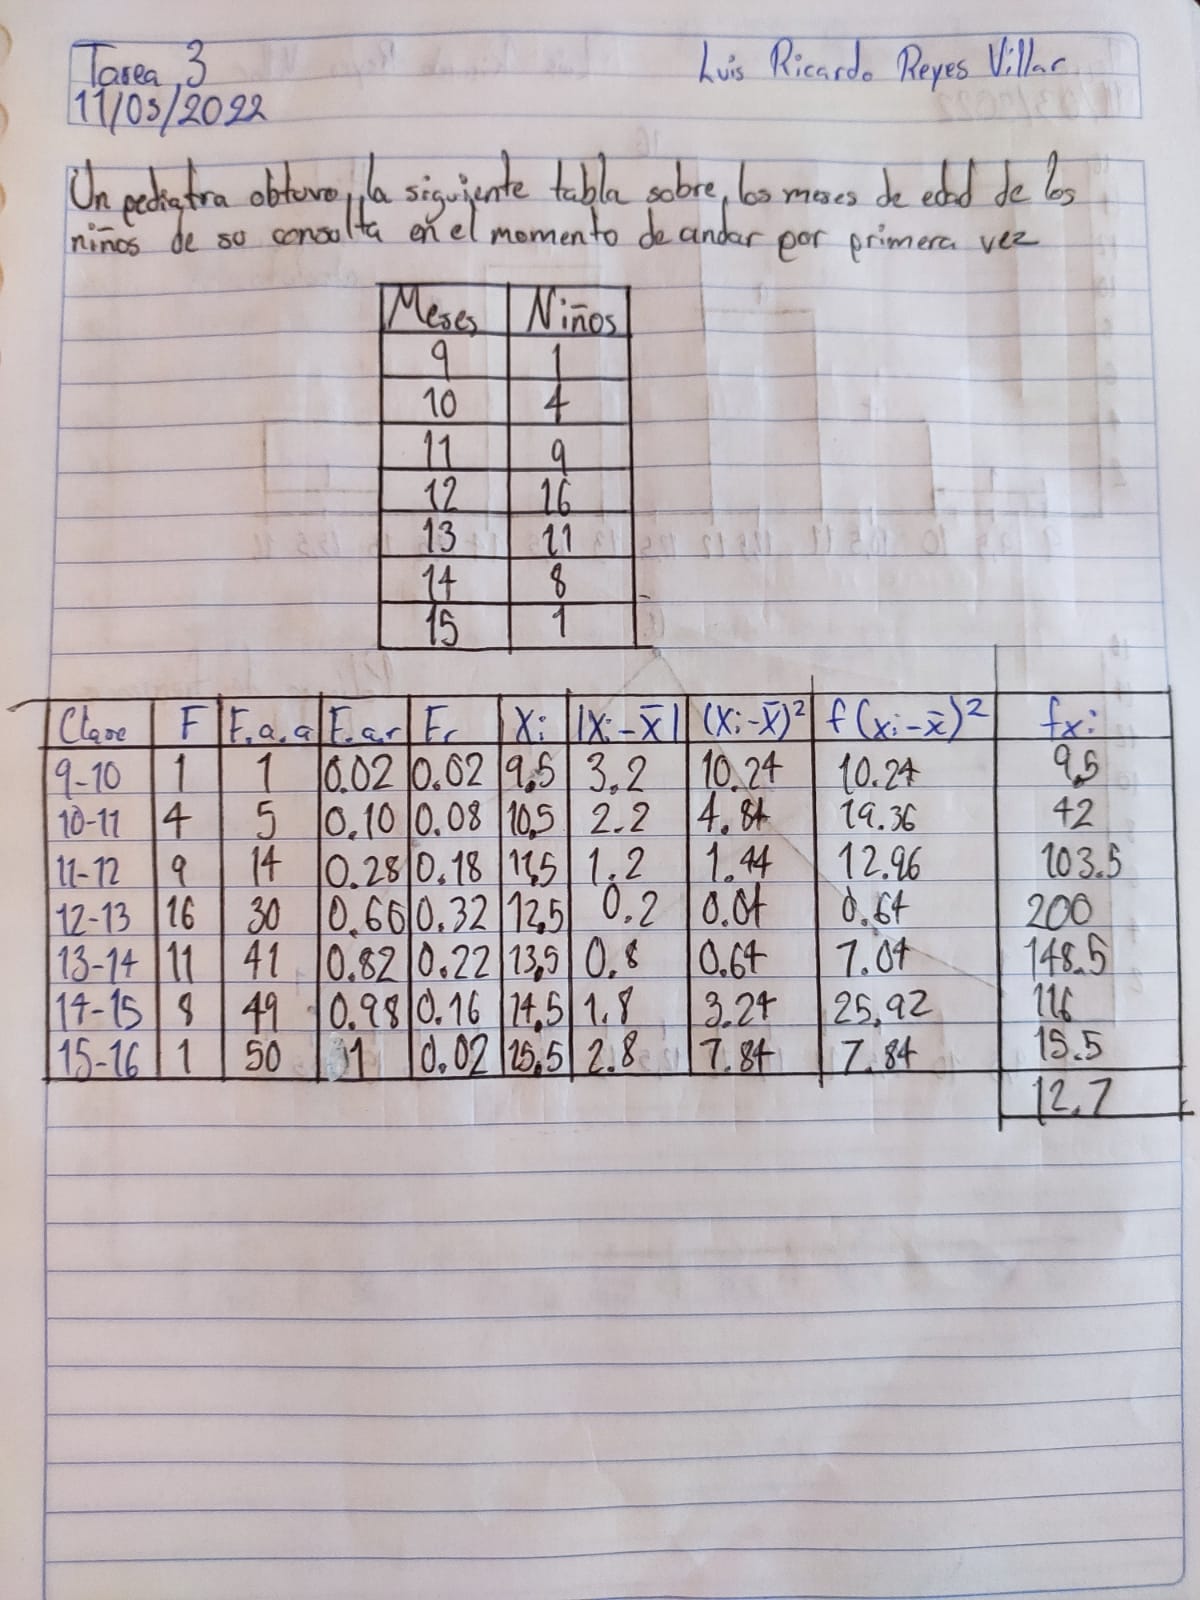 Tarea 3 Luis Ricardo Reyes Villar
11/03/2022
Un pediatra obtuvo, la siguiente tabla sobre, los meses de edad de los
niños de so consulta en el momento de andar por primera vez
Meses Niños
9 1
10 4
11 9
12 16
13 11
14 8
15 1
Clase F F.a.a F.a.r Fr Xi |Xi-x̄| (Xi-x̄)² f(xi-x̄)² fxi
9-10 1 1 0.02 0.02 9,5 3.2 10.24 10.24 9,5
10-11 4 5 0.10 0.08 10,5 2.2 4.84 19.36 42
11-12 9 14 0.28 0.18 11,5 1.2 1.44 12.96 103.5
12-13 16 30 0.60 0.32 12,5 0.2 0.04 0.64 200
13-14 11 41 0.82 0.22 13,5 0.8 0.64 7.04 148.5
14-15 8 49 0.98 0.16 14.5 1.8 3.24 25,92 116
15-16 1 50 1 0.02 15,5 2.8 7.84 7.84 15.5
12.7